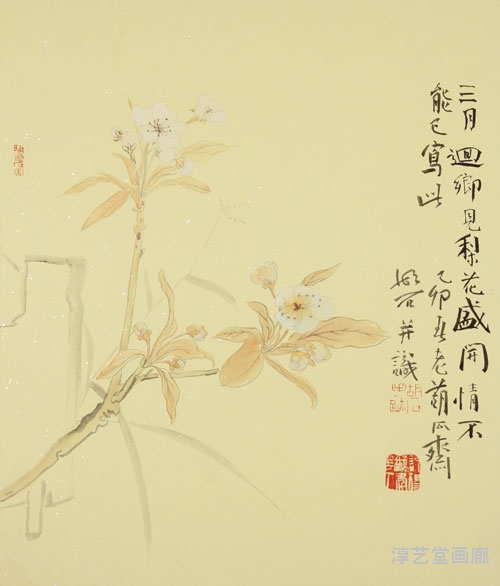 三月迴鄉見梨花盛開情不
能已寫此
乙卯春老葫瓜齋
并識
淳艺堂画廊